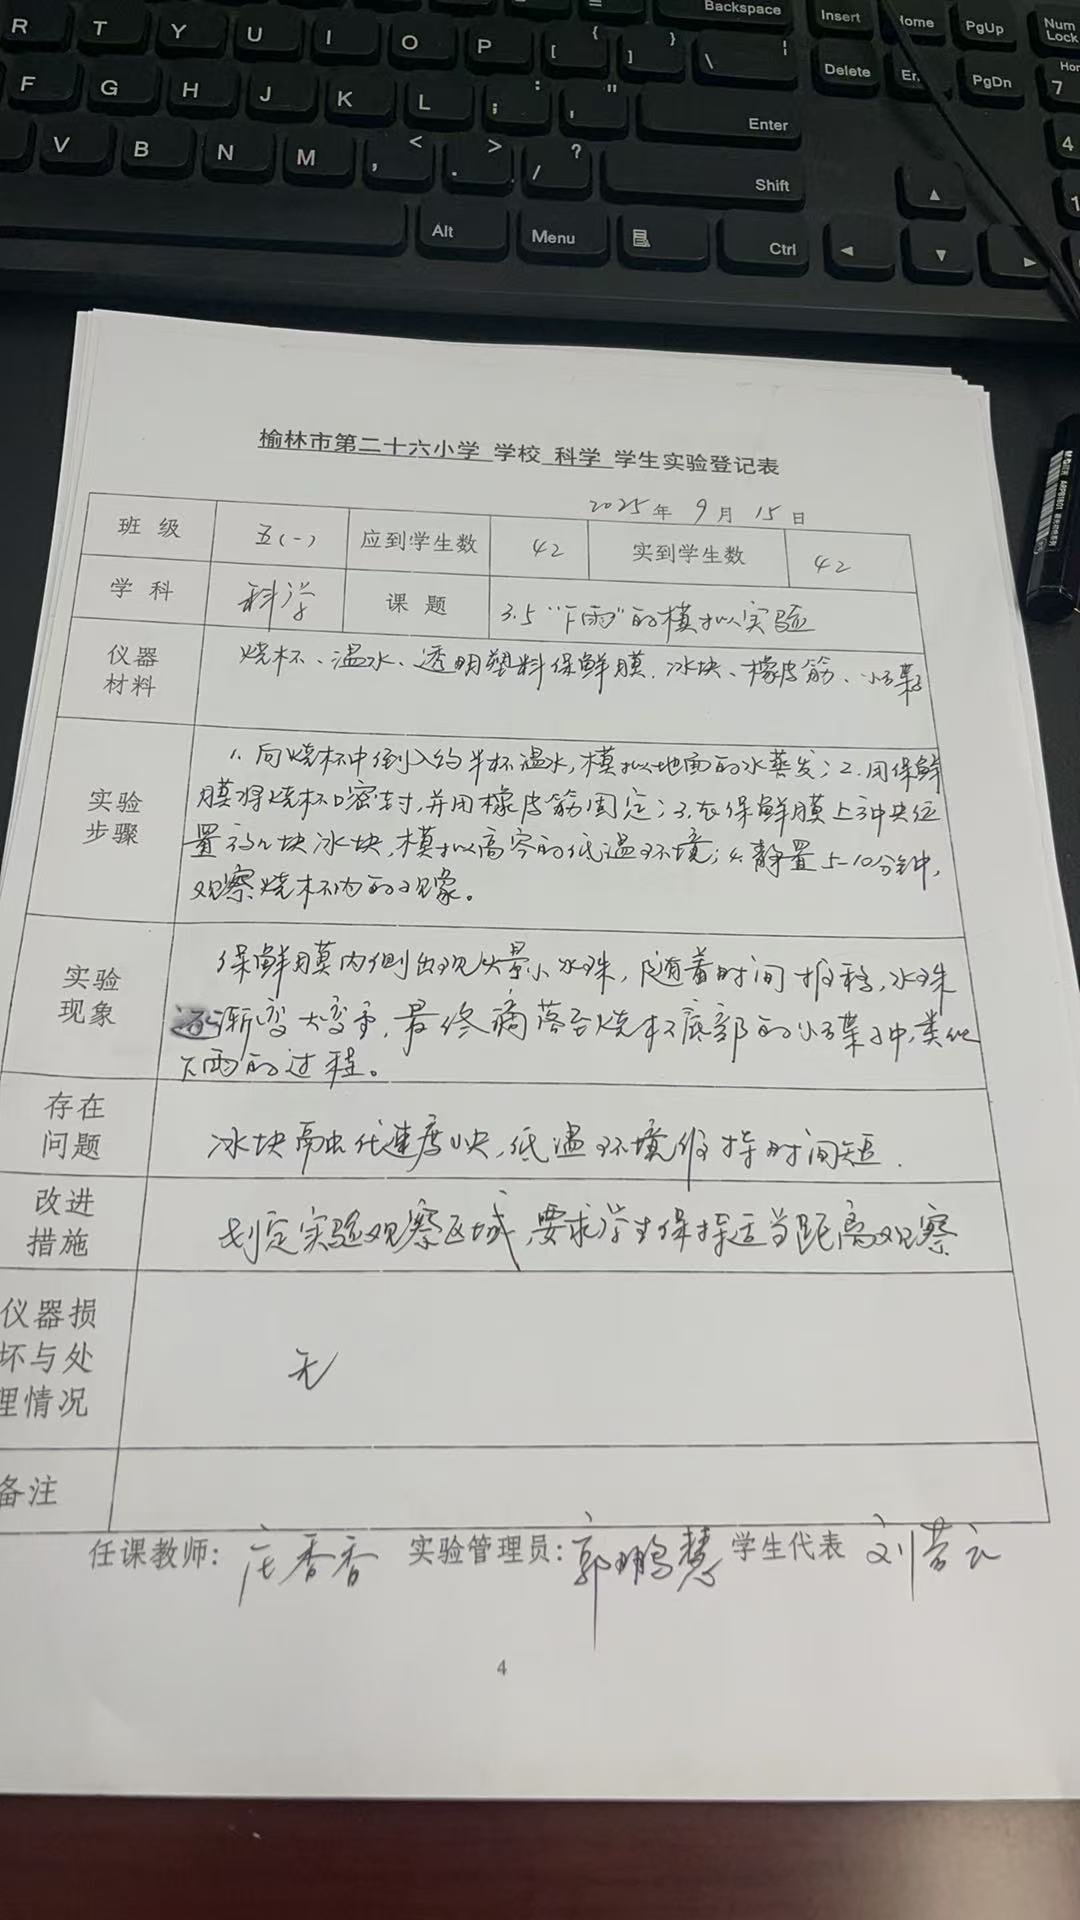 Backspace Insert Home PgUp Num Lock
R T Y U I O P [ { ] } \ | Delete PgDn 7
F G H J K L ; : ' " Enter 4
V B N M , < . > / ? Shift 1
Alt Menu Ctrl
榆林市第二十六小学 学校 科学 学生实验登记表
2025年 9月 15日
班级 五(一) 应到学生数 42 实到学生数 42
学科 科学 课题 3.5 “下雨”的模拟实验
仪器材料 烧杯、温水、透明塑料保鲜膜、冰块、橡皮筋、小
实验步骤 1. 向烧杯中倒入约半杯温水,模拟地面的水蒸发;2.用保鲜
膜将烧杯口密封,并用橡皮筋固定;3.在保鲜膜上方中央位
置放几块冰块,模拟高空的低温环境;4.静置5-10分钟,
观察烧杯内的现象。
实验现象 保鲜膜内侧出现少量小水珠,随着时间推移,水珠
逐渐变大变重,最终滴落至烧杯底部的小中,类似
下雨的过程。
存在问题 冰块融化速度快,低温环境维持时间短.
改进措施 划定实验观察区域,要求学生保持适当距离观察
仪器损坏与处理情况 无
备注
任课教师: 香香 实验管理员:郭鹏慧 学生代表 刘
4